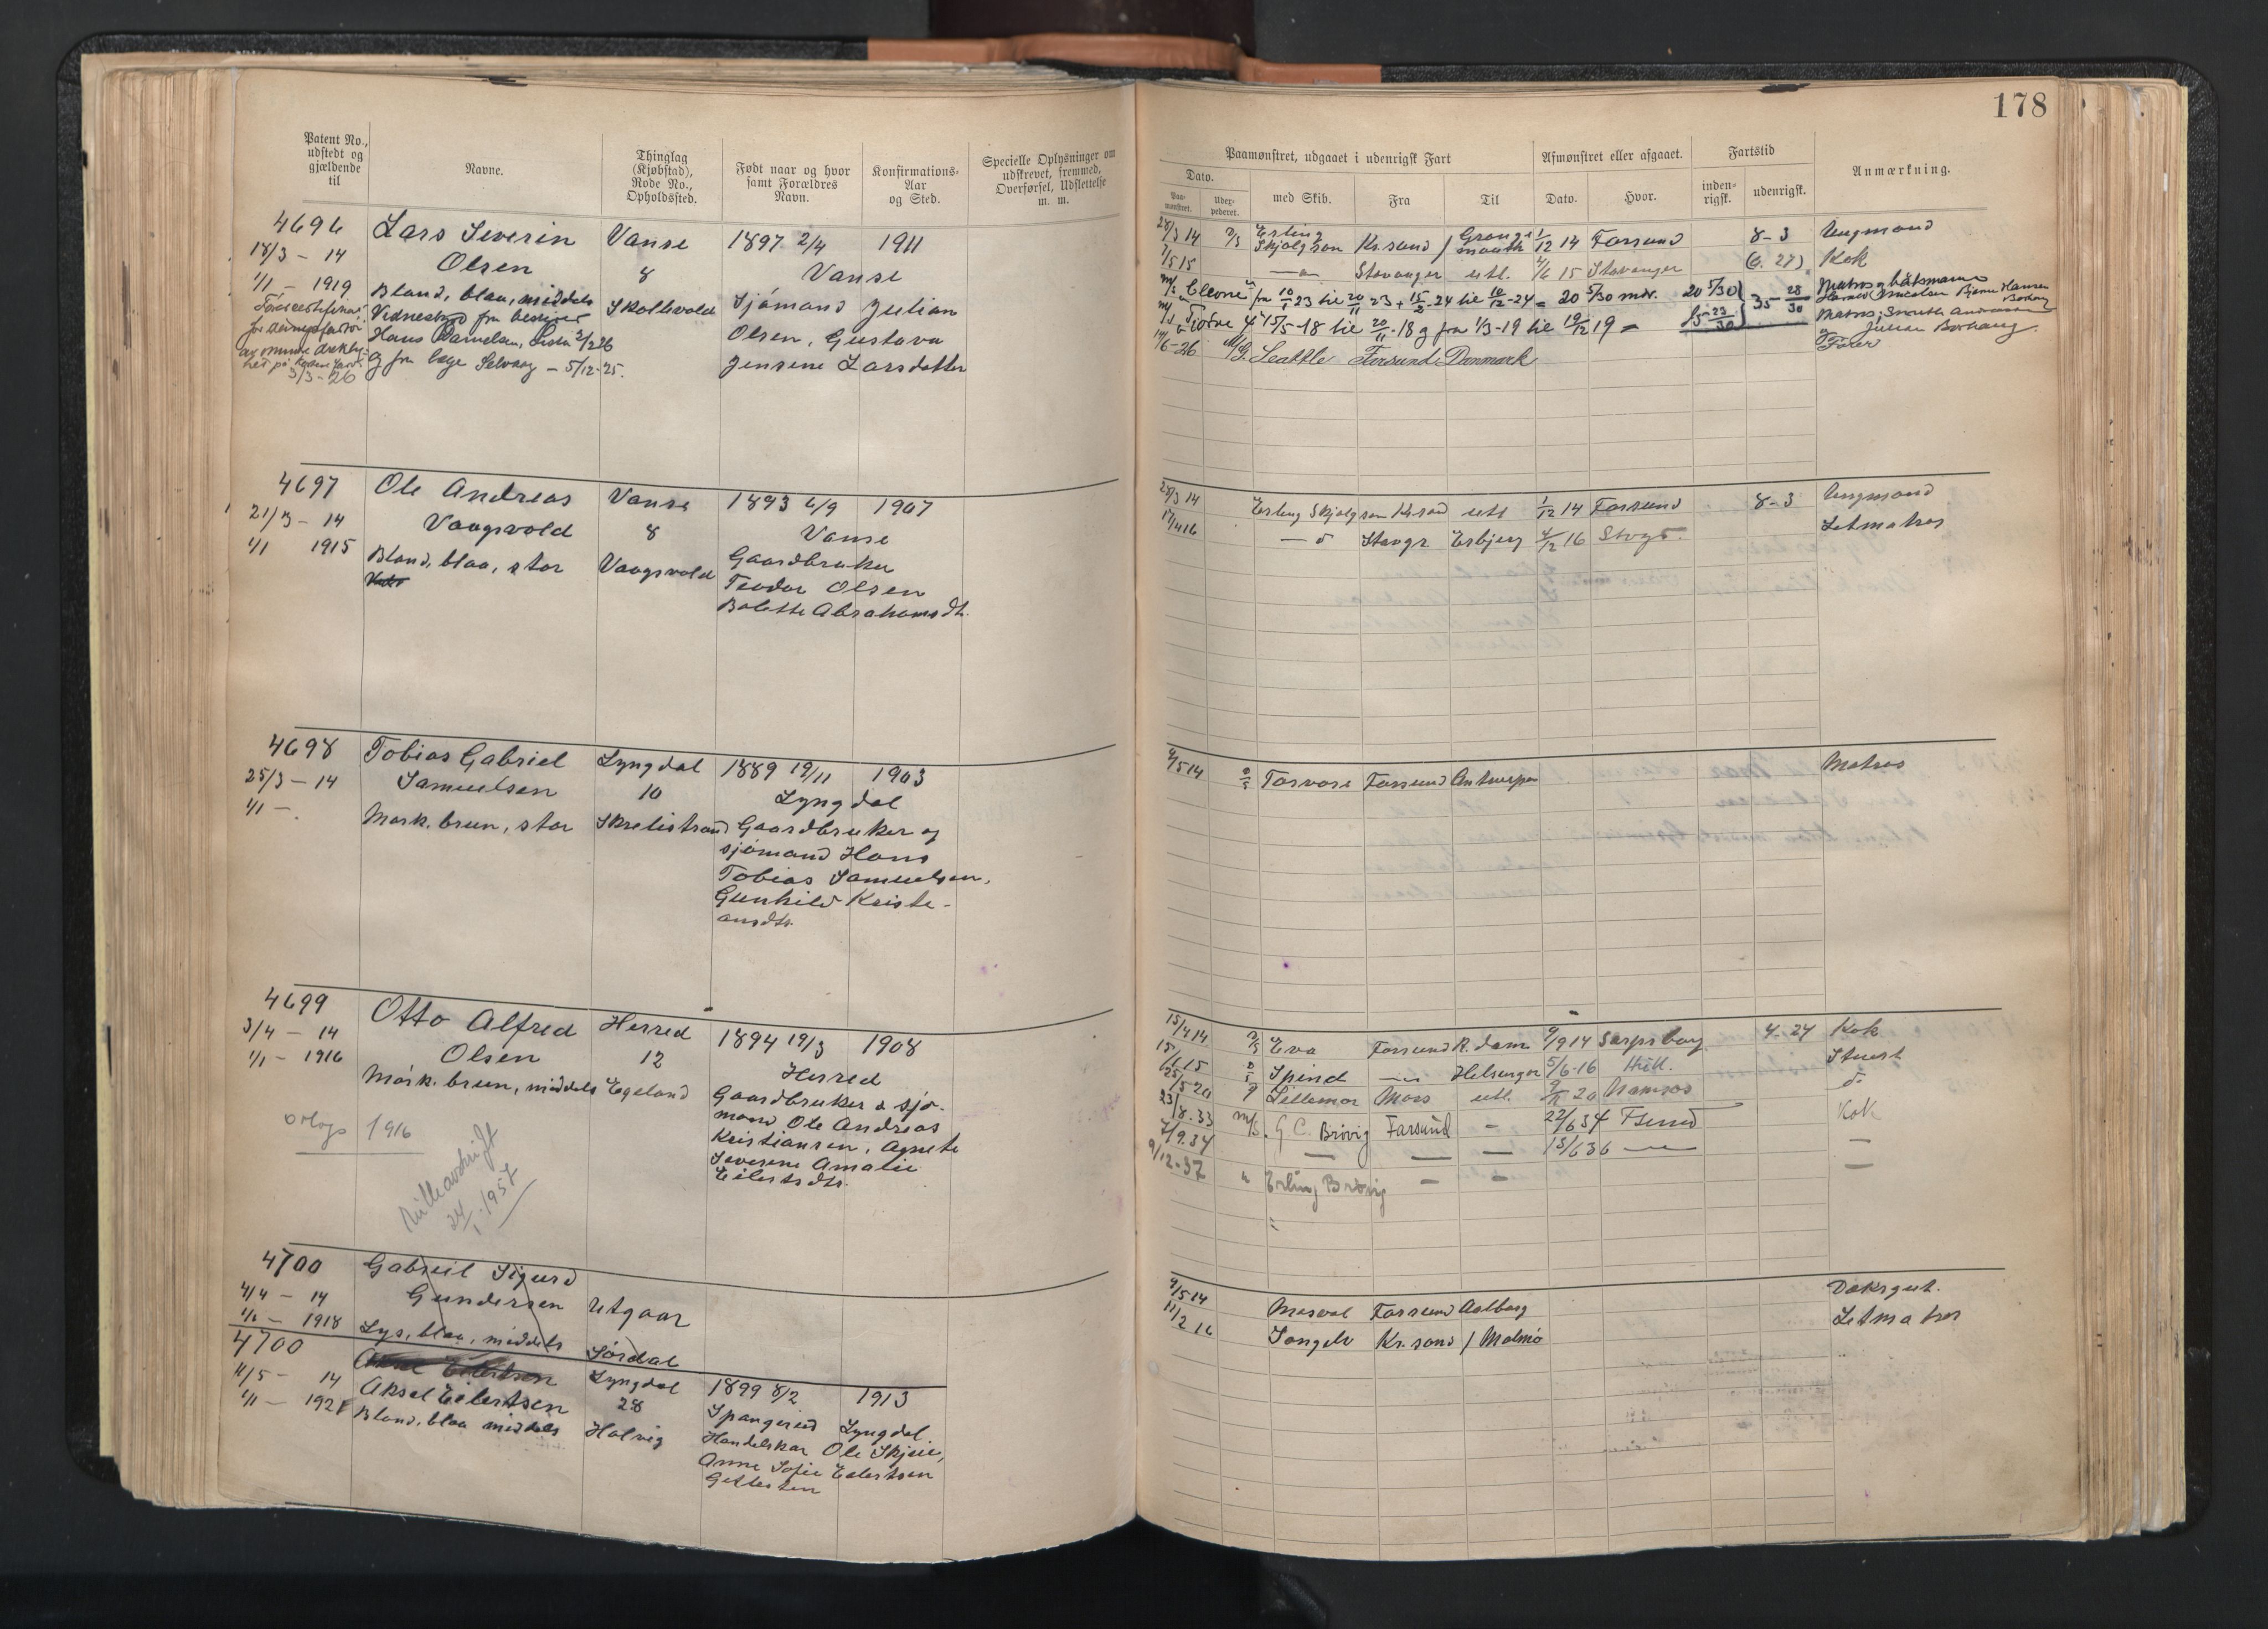 178
Patent No., udstedt og gjældende til
Navne.
Thinglag (Kjøbstad), Rode No., Opholdssted.
Født naar og hvor samt Forældres Navn.
Konfirmations-Aar og Sted.
Specielle Oplysninger om udskrevet, fremmed, Overførsel, Udslettelse m. m.
Paamønstret, udgaaet i udenrigsk Fart
Afmønstret eller afgaaet.
Fartstid
Anmærkning.
Dato.
Paa-mønstret.
med Skib.
Fra
Til
Dato.
Hvor.
inden-rigsk.
udenrigsk.
4696 Lars Severin Vanse 1897 2/4 1911
18/3 - 14 Olsen 8 Vanse
1/1 - 1919 Bland, blaa, middels Skollevold Sjömand Julian
Vidnesbyrd fra bestyrer Olsen, Gustava
Hans Danielsen, Lista 3/2 26 Jensine Larsdatter
og fra læge Selvaag - 5/12-25.
3/3-26
28/3 14 Erling Skjalgson Kr.sand / Grangemouth 1/12 14 Farsund 8-3 Ungmand
5 15 Stavanger utl. 4/6 15 Stavanger Kok
fra 10/1 23 til 20/11 23 + 15/2-24 til 10/12-24 = 20 5/30 mdr. 20 5/30 35 28/30 Matros og båtsmann
15/5-18 til 20/11-18 og fra 1/3-19 til 19/12 19 = 15 23/30 Matros
6-26 Seattle Farsund Danmark Fører
4697 Ole Andreas Vanse 1893 6/9 1907
21/3 - 14 Vaagsvold 8 Vanse
1/1 1915 Bland, blaa, stor Vaagsvold Gaardbruker
Teodor Olsen
Bolette Abrahamsdt.
28/3 14 Erling Skjalgson Kr.sad utl 1/12 14 Farsund 8-3 Ungmand
17/4 16 — d Stavgr Esbjerg 4/12 16 Letmatros
4698 Tobias Gabriel Lyngdal 1889 19/11 1903
25/3 - 14 Samuelsen 10 Lyngdal
1/1 - Mørk, brun, stor Skrelistrand Gaardbruker og
sjömand Hans
Tobias Samuelsen,
Gunhild Kristi-
ansdtr.
4/5 14 Farsund Antwerpen Matros
4699 Otto Alfred Herred 1894 19/3 1908
3/4 - 14 Olsen 12 Herred
1/1 - 1916 Mörk, brun, middels Egeland Gaardbruker & sjö-
mand Ole Andreas
Kristiansen, Agnete
Severine Amalie
Eilertsdtr.
Orlogs 1916
24/1. 1957
15/4 14 Eva Farsund R.dam 9/9 14 Sarpsborg 4-24 Kok
15/6 15 Spind —"— Helsingør 5/6-16 Hull. Stuert
25/5 20 Lillemor Moss utl. 20 Namsos d
23/8.33 m/s G. C. Brövig Farsund - 22/6 34 Fsund Kok
7/9.34 — — — 15/6 36 — —
9/12-37 " Erling Brövig — — —
4700 Gabriel Sigurd
4/4 - 14 Gundersen Utgaar
1/1 - 1918 Lys, blaa, middels Sördal
4/5 14 Farsund Aalborg Daksgut.
11/2 16 Songelv Kr.sand / Malmö Letmatros
4700 Aksel Eilertsen
11/5 - 14 Aksel Eilertsen Lyngdal 1899 8/2 1913
1/1 - 1921 Bland, blaa middels 28 Spangereid Lyngdal
Halvig Handelskar Ole Skjeie,
Anne Sofie Eilertsen